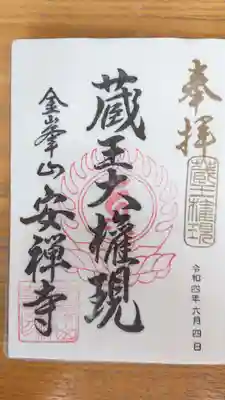 奉拝
蔵王権現
令和四年六月四日
蔵王大権現
金峯山
安禅寺